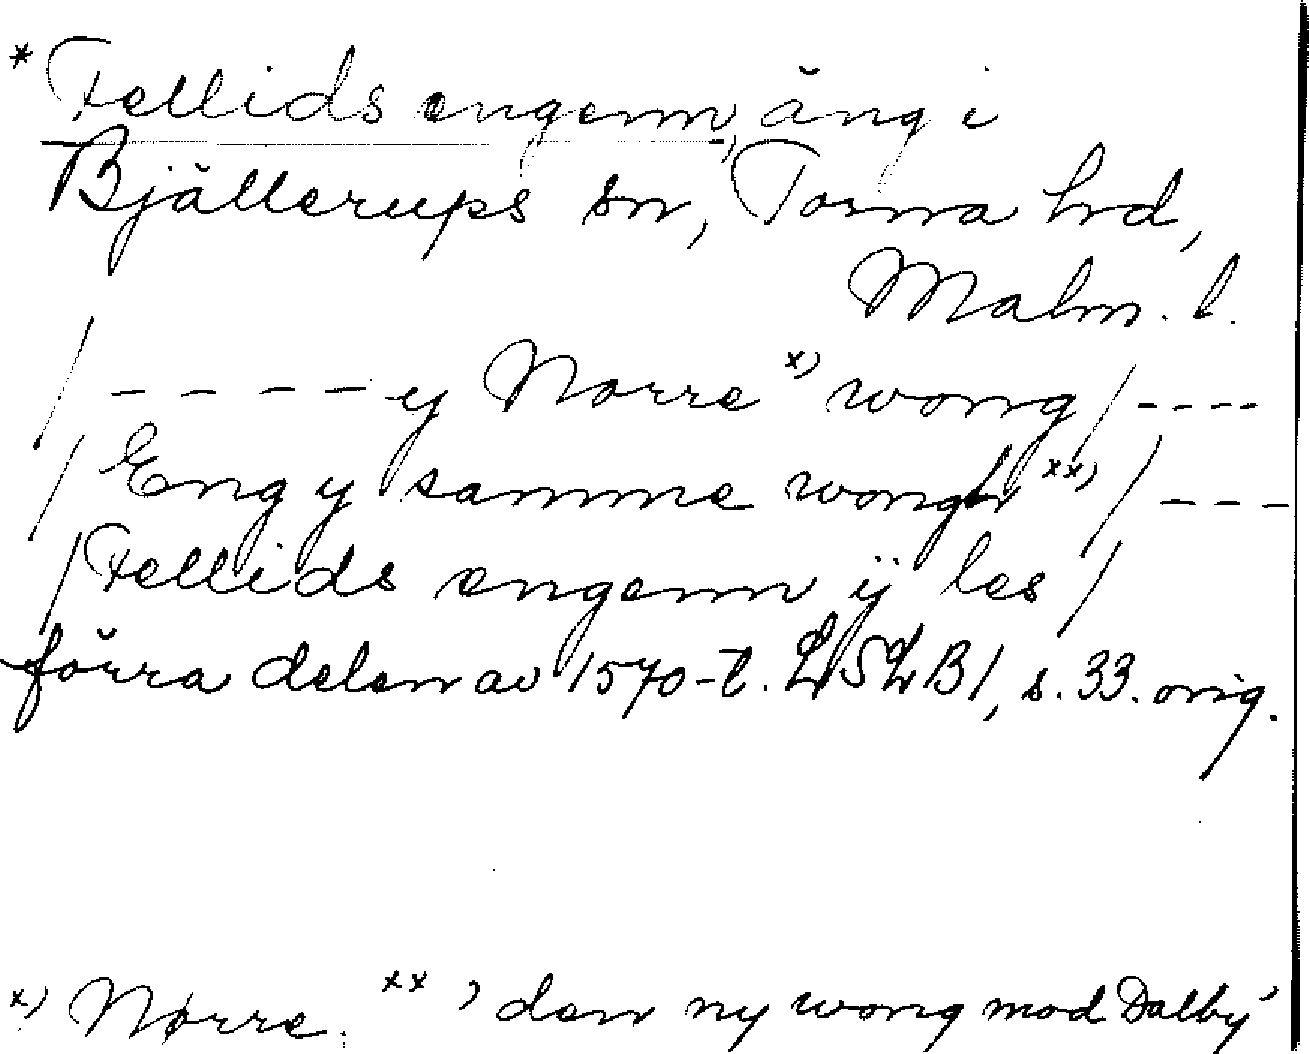 * Fellids engenn, äng i
Bjällerups sn, Torna hd,
Malm. l.
/ - - - - - y Norre x) wong / - - - -
/ Eng y samme wongh xx) / - - -
/ Fellids engenn ij les /
förra delen av 1570-t. LSLB 1, s. 33. orig.
x) Nørre. xx) den ny wong mod Dalby